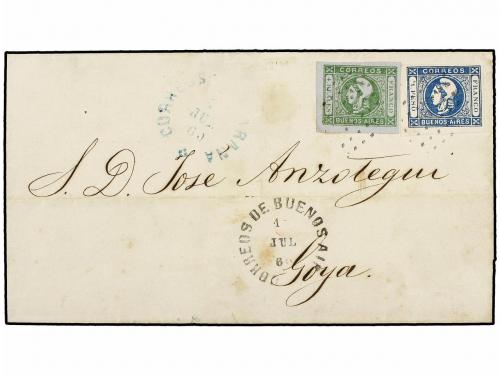 CORREOS
BUENOS AIRES
CORREOS
FRANCO
1 PESO
BUENOS AIRES
CORREOS
JUL
S. D. Jose Anzotegui
CORREOS DE BUENOS AIR
1
JUL
6
Goya.